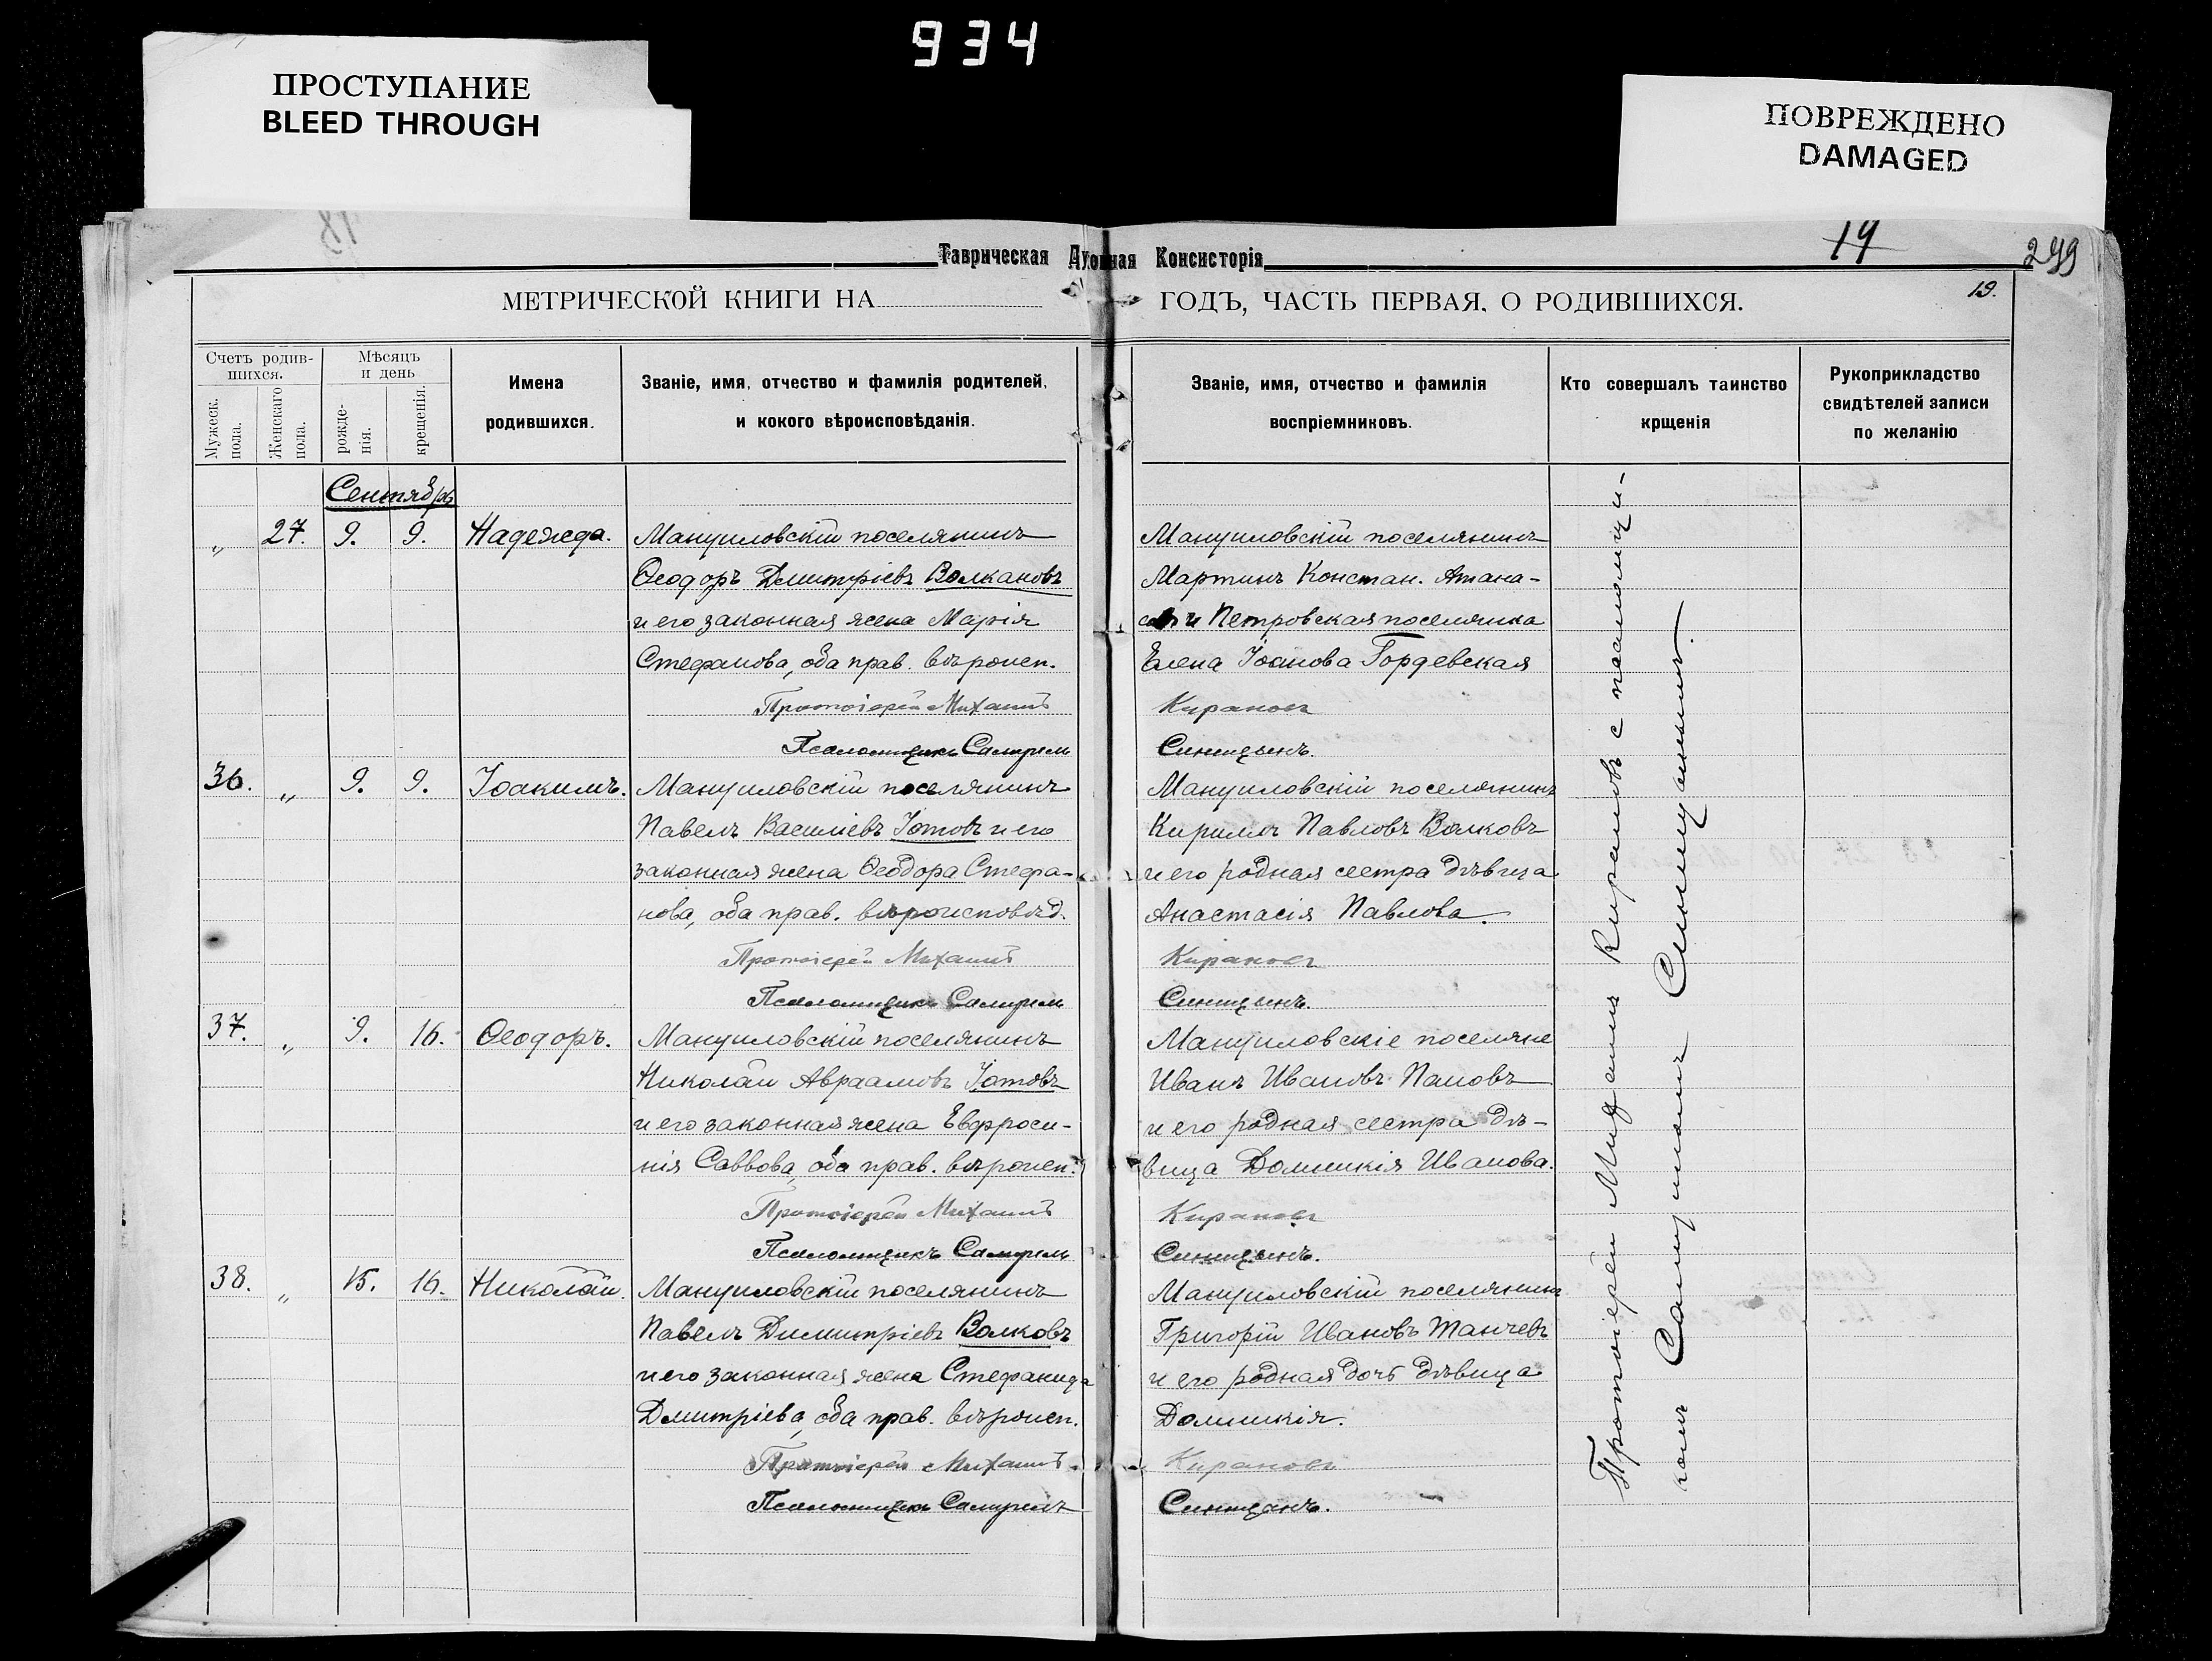 934
ПРОСТУПАНИЕ
BLEED THROUGH
ПОВРЕЖДЕНО
DAMAGED
18
Таврическая Духовная Консисторія
19
299
19.
МЕТРИЧЕСКОЙ КНИГИ НА
ГОДЪ, ЧАСТЬ ПЕРВАЯ, О РОДИВШИХСЯ.
Счетъ родив-
шихся.
Мужеск.
пола.
Женскаго
пола.
Мѣсяцъ
и день
рожде-
нія.
крещенія.
Имена
родившихся.
Званіе, имя, отчество и фамилія родителей,
и кокого вѣроисповѣданія.
Званіе, имя, отчество и фамилія
воспріемниковъ.
Кто совершалъ таинство
крщенія
Рукоприкладство
свидѣтелей записи
по желанію
Сентябрь
„ 27. 9. 9. Надежда.
Мануиловскій поселянинъ
Ѳеодоръ Дмитріевъ Волкановъ
и его законная жена Марія
Стефанова, оба прав. вѣроисп.
Протоіерей Михаилъ
Псаломщикъ Самуилъ
Мануиловскій поселянинъ
Мартинъ Констан. Атана-
совъ и Петровская поселянка
Елена Іоанова Гордевская
Кирановъ
Синицынъ.
36. „ 9. 9. Іоакимъ.
Мануиловскій поселянинъ
Павелъ Василіевъ Іотовъ и его
законная жена Ѳеодора Стефа-
нова, оба прав. вѣроисповѣд.
Протоіерей Михаилъ
Псаломщикъ Самуилъ
Мануиловскій поселянинъ
Кирилъ Павловъ Волковъ
и его родная сестра дѣвица
Анастасія Павлова.
Кирановъ
Синицынъ.
37. „ 9. 16. Ѳеодоръ.
Мануиловскій поселянинъ
Николай Авраамовъ Іотовъ
и его законная жена Евфроси-
нія Саввова, оба прав. вѣроисп.
Протоіерей Михаилъ
Псаломщикъ Самуилъ
Мануиловскіе поселяне
Иванъ Ивановъ Пановъ
и его родная сестра дѣ-
вица Домникія Иванова.
Кирановъ
Синицынъ.
38. „ 15. 16. Николай.
Мануиловскій поселянинъ
Павелъ Димитріевъ Волковъ
и его законная жена Стефанида
Дмитріева, оба прав. вѣроисп.
Протоіерей Михаилъ
Псаломщикъ Самуилъ
Мануиловскій поселянинъ
Григорій Ивановъ Танчевъ
и его родная дочь дѣвица
Домникія.
Кирановъ
Синицынъ.
Протоіерей Михаилъ Кирановъ с псаломщи-
комъ Самуиломъ Синицынымъ.